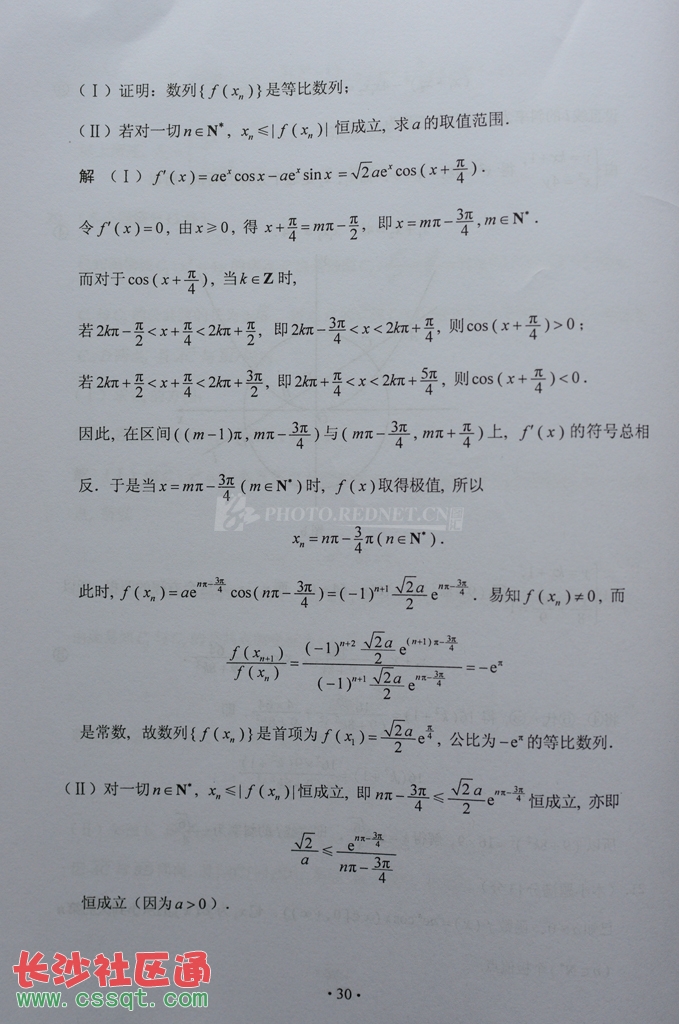 (Ⅰ)证明：数列{f(xₙ)}是等比数列；
(Ⅱ)若对一切n∈N*，xₙ≤|f(xₙ)| 恒成立，求a的取值范围．
解 (Ⅰ) f′(x)=aeˣcosx−aeˣsinx=√2aeˣcos(x+π/4)．
令f′(x)=0，由x≥0，得 x+π/4=mπ−π/2，即x=mπ−3π/4，m∈N*．
而对于cos(x+π/4)，当k∈Z时，
若2kπ−π/2<x+π/4<2kπ+π/2，即2kπ−3π/4<x<2kπ+π/4，则cos(x+π/4)>0；
若2kπ+π/2<x+π/4<2kπ+3π/2，即2kπ+π/4<x<2kπ+5π/4，则cos(x+π/4)<0．
因此，在区间((m−1)π，mπ−3π/4)与(mπ−3π/4，mπ+π/4)上，f′(x)的符号总相
反．于是当x=mπ−3π/4(m∈N*)时，f(x)取得极值，所以
PHOTO.REDNET.CN
xₙ=nπ−3/4π(n∈N*)．
此时，f(xₙ)=ae^(nπ−3π/4)cos(nπ−3π/4)=(−1)^(n+1) √2a/2 e^(nπ−3π/4)．易知f(xₙ)≠0，而
f(xₙ₊₁)/f(xₙ)=[(−1)^(n+2) √2a/2 e^((n+1)π−3π/4)]/[(−1)^(n+1) √2a/2 e^(nπ−3π/4)]=−e^π
是常数，故数列{f(xₙ)}是首项为f(x₁)=√2a/2 e^(π/4)，公比为−e^π的等比数列．
(Ⅱ)对一切n∈N*，xₙ≤|f(xₙ)|恒成立，即nπ−3π/4≤√2a/2 e^(nπ−3π/4)恒成立，亦即
√2/a≤e^(nπ−3π/4)/(nπ−3π/4)
恒成立(因为a>0)．
长沙社区通
www.cssqt.com
·30·